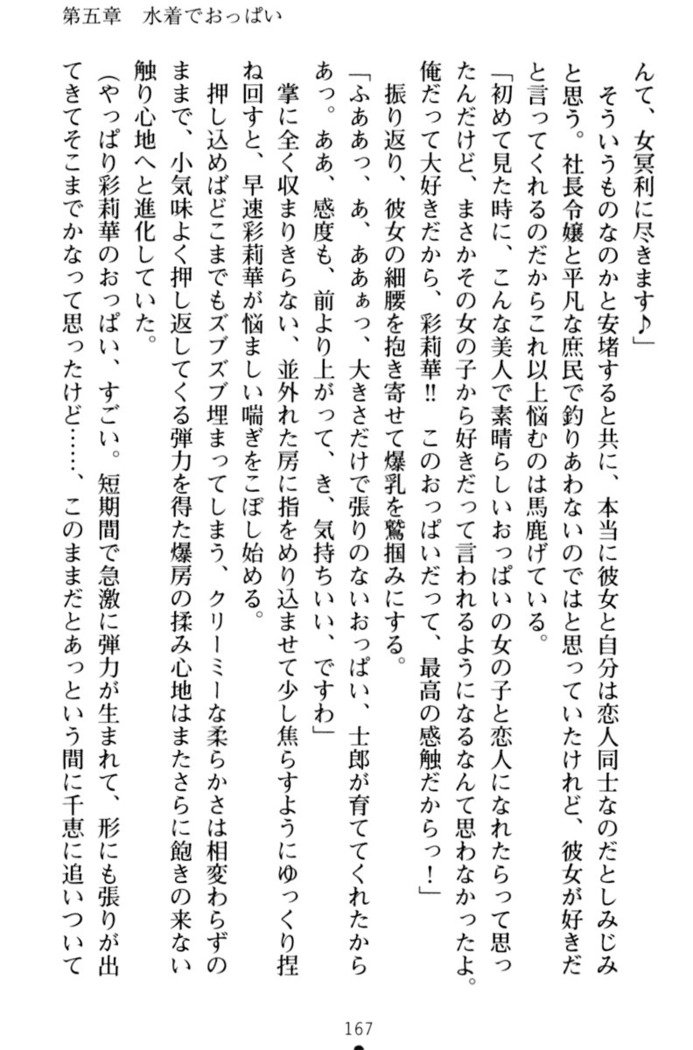 第五章　水着でおっぱい
んて、女冥利に尽きます♪」
　そういうものなのかと安堵すると共に、本当に彼女と自分は恋人同士なのだとしみじみ
と思う。社長令嬢と平凡な庶民で釣りあわないのではと思っていたけれど、彼女が好きだ
と言ってくれるのだからこれ以上悩むのは馬鹿げている。
「初めて見た時に、こんな美人で素晴らしいおっぱいの女の子と恋人になれたらって思っ
たんだけど、まさかその女の子から好きだって言われるようになるなんて思わなかったよ。
俺だって大好きだから、彩莉華!!　このおっぱいだって、最高の感触だからっ！」
　振り返り、彼女の細腰を抱き寄せて爆乳を鷲掴みにする。
「ふああっ、あ、ああぁっ、大きさだけで張りのないおっぱい、士郎が育ててくれたから
あっ。ああ、感度も、前より上がって、き、気持ちいい、ですわ」
　掌に全く収まりきらない、並外れた房に指をめり込ませて少し焦らすようにゆっくり捏
ね回すと、早速彩莉華が悩ましい喘ぎをこぼし始める。
　押し込めばどこまでもズブズブ埋まってしまう、クリーミーな柔らかさは相変わらずの
ままで、小気味よく押し返してくる弾力を得た爆房の揉み心地はまたさらに飽きの来ない
触り心地へと進化していた。
（やっぱり彩莉華のおっぱい、すごい。短期間で急激に弾力が生まれて、形にも張りが出
てきてそこまでかなって思ったけど……、このままだとあっという間に千恵に追いついて
167